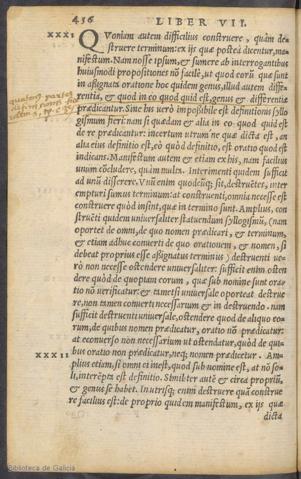 436 LIBER VII.
XXXI Quoniam autem difficilius construere, quàm de-
struere terminum: ex ijs quæ postea dicentur, ma-
nifestum. Nam nosse ipsum, & sumere ab interrogantibus
huiusmodi propositiones nō facile, ut quod eorū quæ sunt
in assignata oratione hoc quidem genus, illud autem diffe-
rentia, & quod in eo quod quid est, genus & differentia
prædicantur. Sine ijs uerò impoßibile est definitionis syllo
gismum fieri: nam si quædam & alia in eo quod quid est
de re prædicantur: incertum utrum ne quæ dicta est, an
alia eius definitio est, eò quòd definitio, est oratio quod est
indicans. Manifestum autem & etiam ex his, nam facilius
unum cōcludere, quàm multa. Interimenti quidem sufficit
ad unū disserere. Vnū enim quodcūq; sit, destruētes, inter
empturi sumus terminum: at construenti, omnia necesse est
construere quòd insint, quæ in termino sunt. Amplius, con
struēti quidem uniuersaliter statuendum syllogismū, (nam
oportet de omni, de quo nomen prædicari, & terminum,
& etiam adhuc conuerti de quo orationem, & nomen, si
debeat proprius esse aßignatus terminus) destruenti ue-
rò non necesse ostendere uniuersaliter: sufficit enim osten
dere quòd de quopiam eorum, quæ sub nomine sunt ora-
tio nō uerificatur: & etiamsi uniuersale oporteat destrue
re, non tamen conuerti necessarium & in destruendo. nam
sufficit destruenti uniuersale, ostendere quod de aliquo eo-
rum, de quibus nomen prædicatur, oratio nō prædicatur:
at econuerso non necessarium ut ostendatur, quòd de qui-
bus oratio non prædicatur, neq; nomen prædicetur. Am-
XXXII plius etiam, si omni et inest, quod sub nomine est, at nō so-
li, interēpta est definitio. Similiter autē & circa propriū,
& genus se habet. In utrisq; enim destruere quā construe
re facilius est: de proprio quidem manifestum, ex ijs quæ
dicta
Biblioteca de Galicia